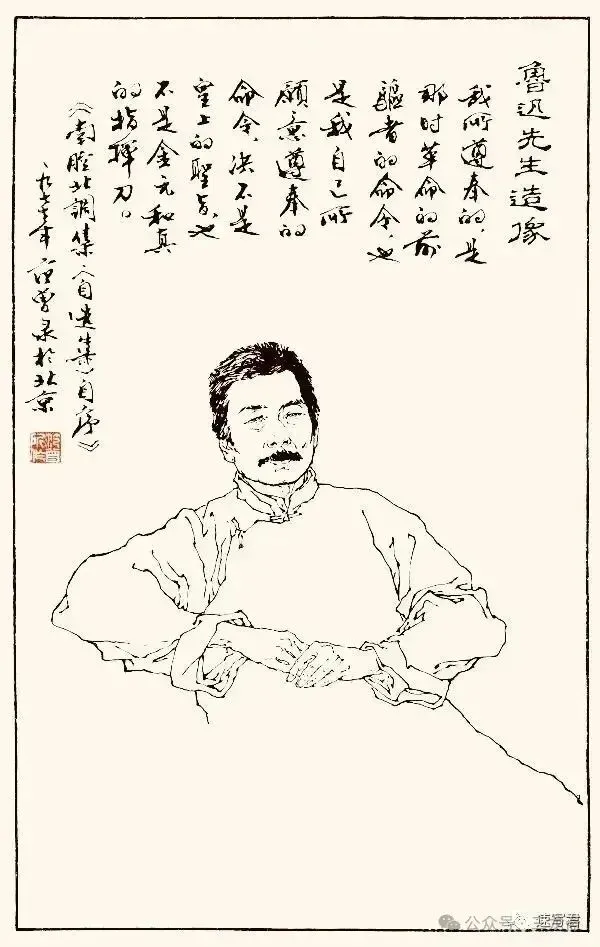 魯迅先生造像
我所遵奉的,是
那时革命的前
驅者的命令,也
是我自己所
願意遵奉的
命令,决不是
皇上的聖旨,也
不是金元和真
的指揮刀。
《南腔北調集《自选集》自序》
一九七七年 范曾录於北京
公众号